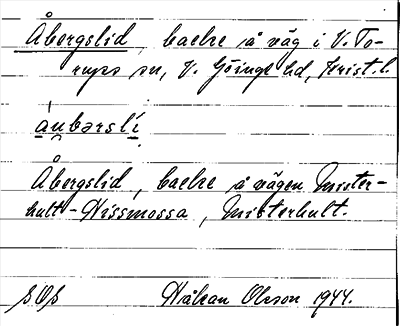 Åbergslid, backe å väg i V. To-
rups sn, V. Göinge hd, Krist. l.
áubərslí
Åbergslid, backe å vägen Mister-
hult - Nissmossa, Misterhult.
SOS Håkan Olsson 1944.